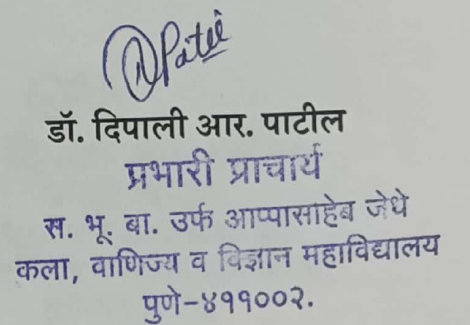 Patil
डॉ. दिपाली आर. पाटील
प्रभारी प्राचार्य
स. भू. बा. उर्फ आप्पासाहेब जेधे
कला, वाणिज्य व विज्ञान महाविद्यालय
पुणे-४११००२.